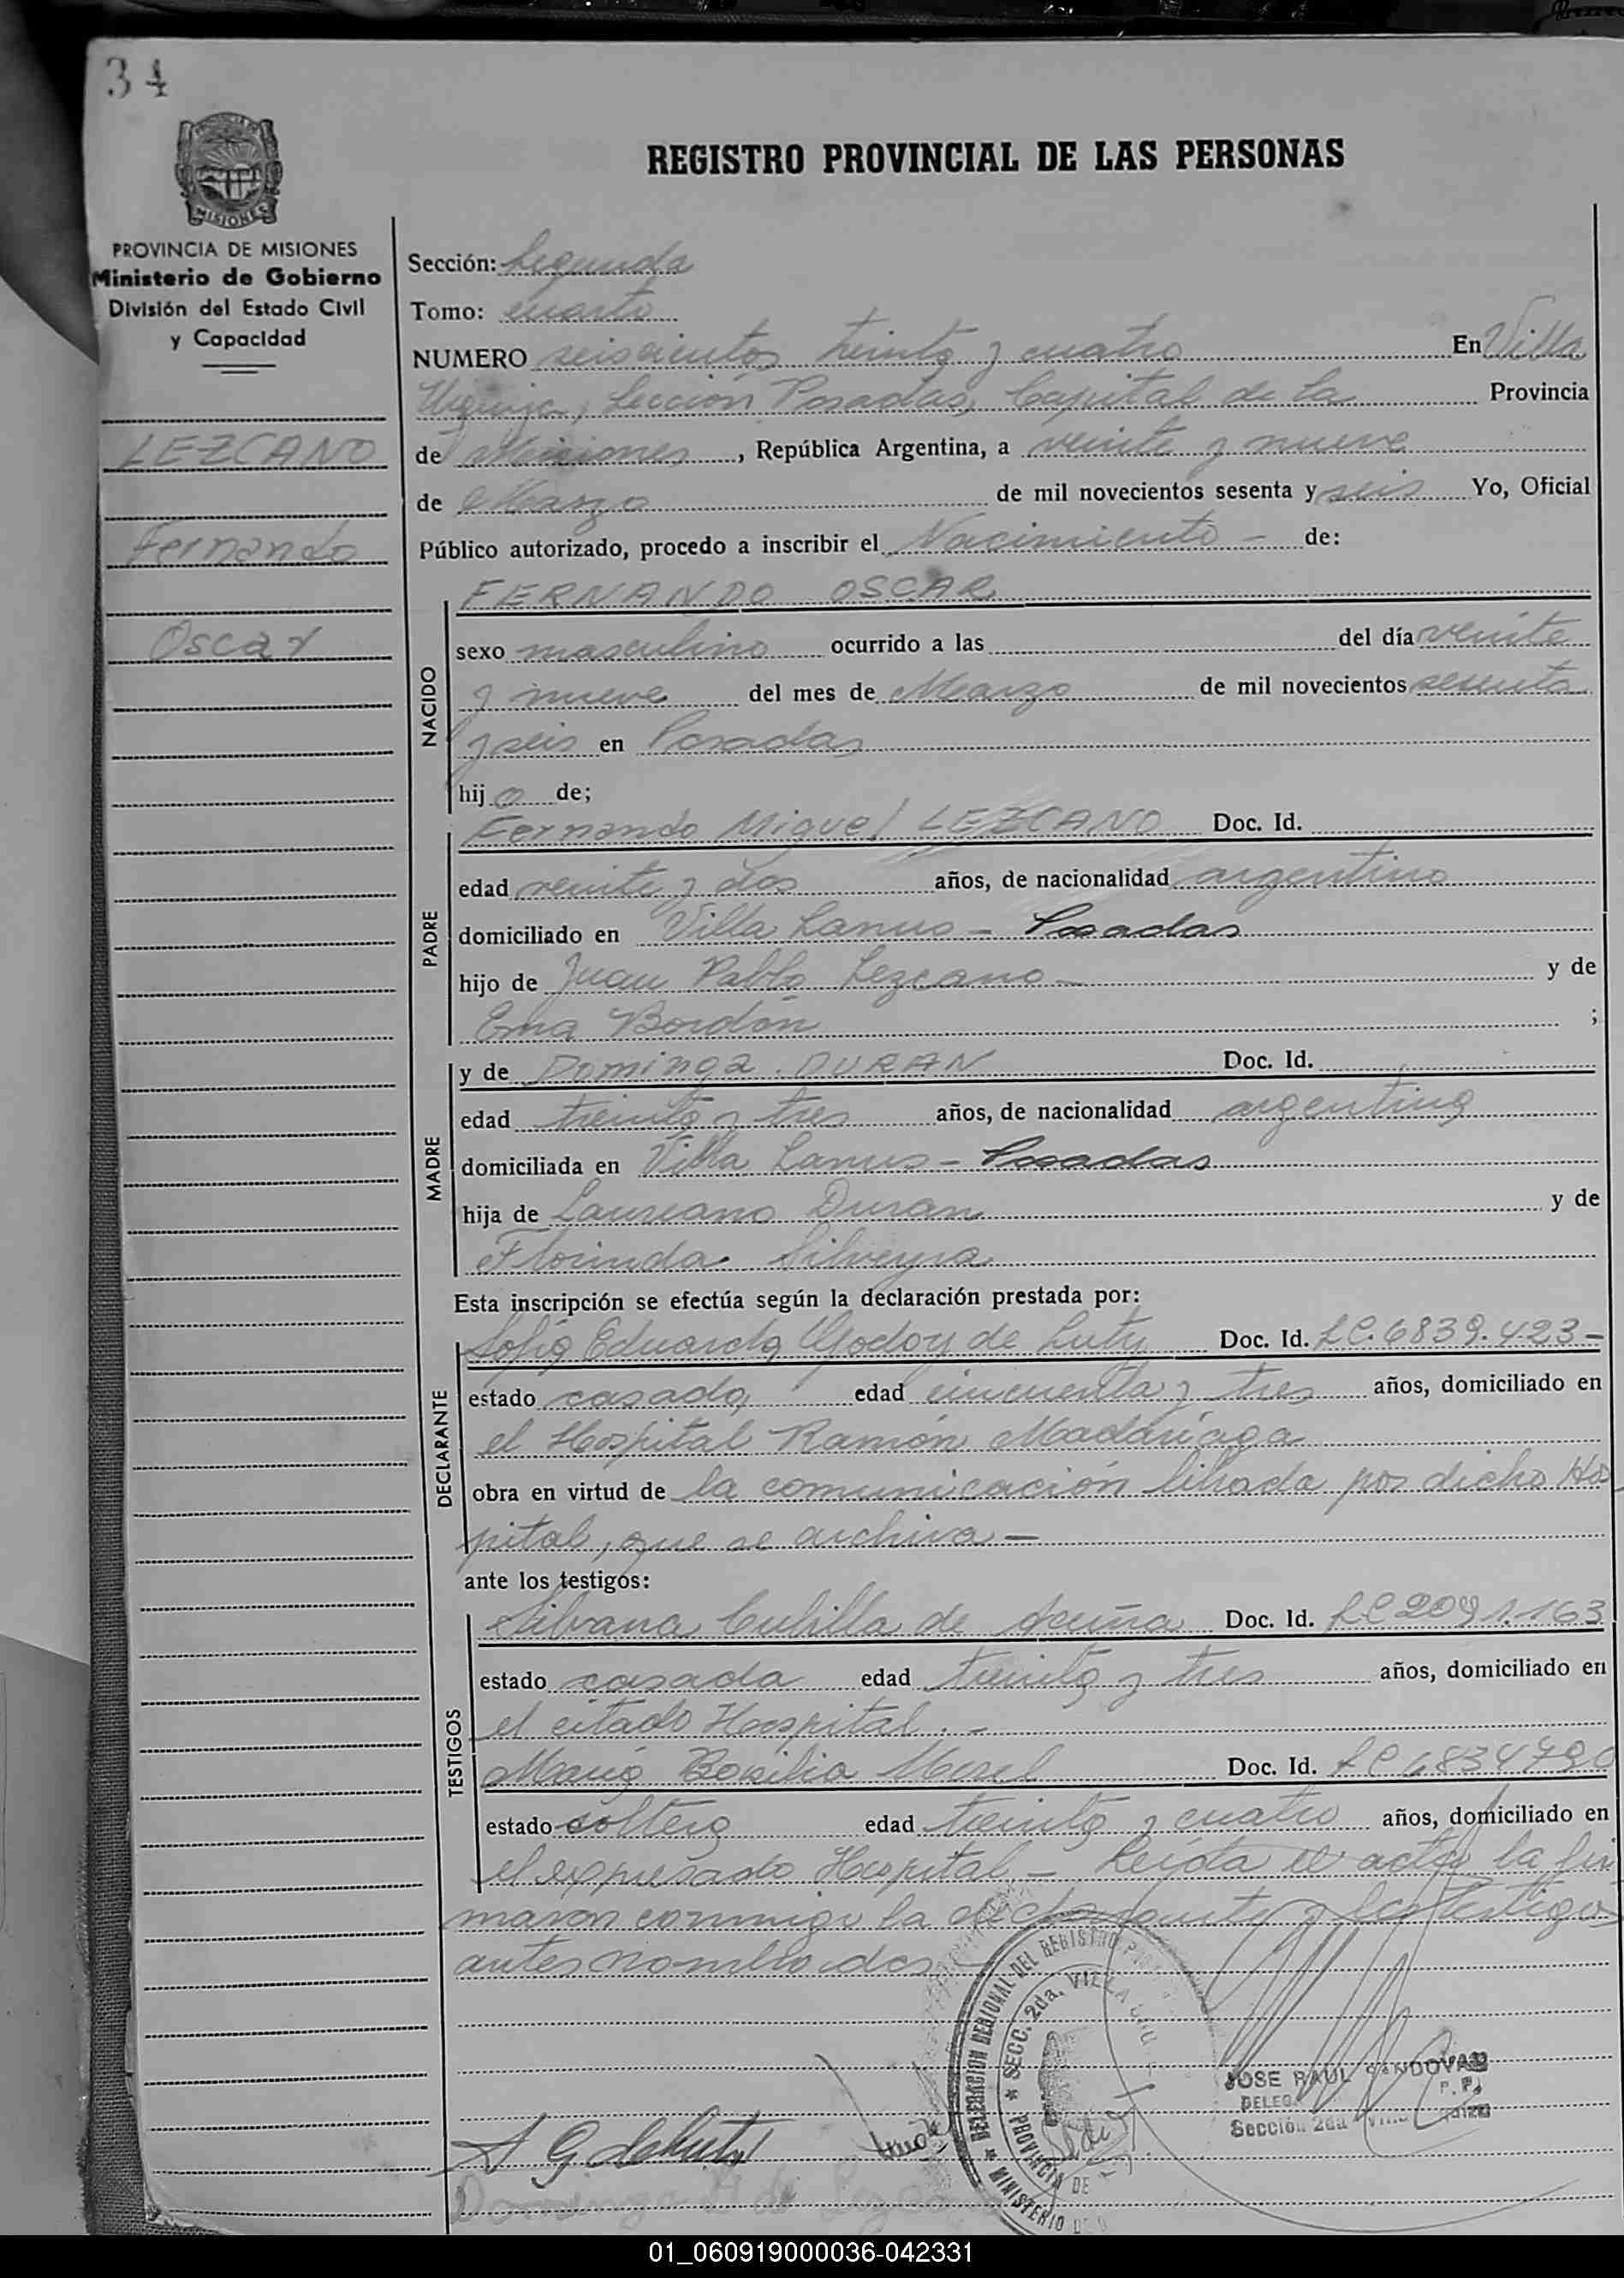 34
PROVINCIA DE MISIONES
Ministerio de Gobierno
División del Estado Civil
y Capacidad
LEZCANO
Fernando
Oscar
REGISTRO PROVINCIAL DE LAS PERSONAS
Sección: Segunda
Tomo: cuarto
NUMERO seiscientos treinta y cuatro En Villa
Urquiza, Sección Posadas, Capital de la Provincia
de Misiones, República Argentina, a veinte y nueve
de Marzo de mil novecientos sesenta y seis Yo, Oficial
Público autorizado, procedo a inscribir el Nacimiento - de:
NACIDO
FERNANDO OSCAR
sexo masculino ocurrido a las del día veinte
y nueve del mes de Marzo de mil novecientos sesenta
y seis en Posadas
hijo de;
PADRE
Fernando Miguel LEZCANO Doc. Id.
edad veinte y dos años, de nacionalidad argentino
domiciliado en Villa Lanus - Posadas
hijo de Juan Pablo Lezcano - y de
Ema Bordón ;
MADRE
y de Dominga DURAN Doc. Id.
edad treinta y tres años, de nacionalidad argentina
domiciliada en Villa Lanus - Posadas
hija de Laureano Duran y de
Florinda Silveyra
Esta inscripción se efectúa según la declaración prestada por:
DECLARANTE
Sofia Eduarda Godoy de Luty Doc. Id. LC. 6839.423-
estado casada edad cincuenta y tres años, domiciliado en
el Hospital Ramón Madariaga
obra en virtud de la comunicación librada por dicho Hos
pital, que se archiva -
ante los testigos:
TESTIGOS
Silvana Cubilla de Acuña Doc. Id. LC 2091.163
estado casada edad treinta y tres años, domiciliado en
el citado Hospital. -
María Morel Doc. Id. LC 6834790
estado soltera edad treinta y cuatro años, domiciliado en
el expresado Hospital - Leída el acta la fir
maron conmigo la declarante y los testigos
antes nombrados
DELEGACION REGIONAL DEL REGISTRO
SECC. 2da. VILLA
PROVINCIA DE
MINISTERIO
JOSE RAUL SANDOVAL
Sección 2da
Dominga de Lezcano
01_060919000036-042331